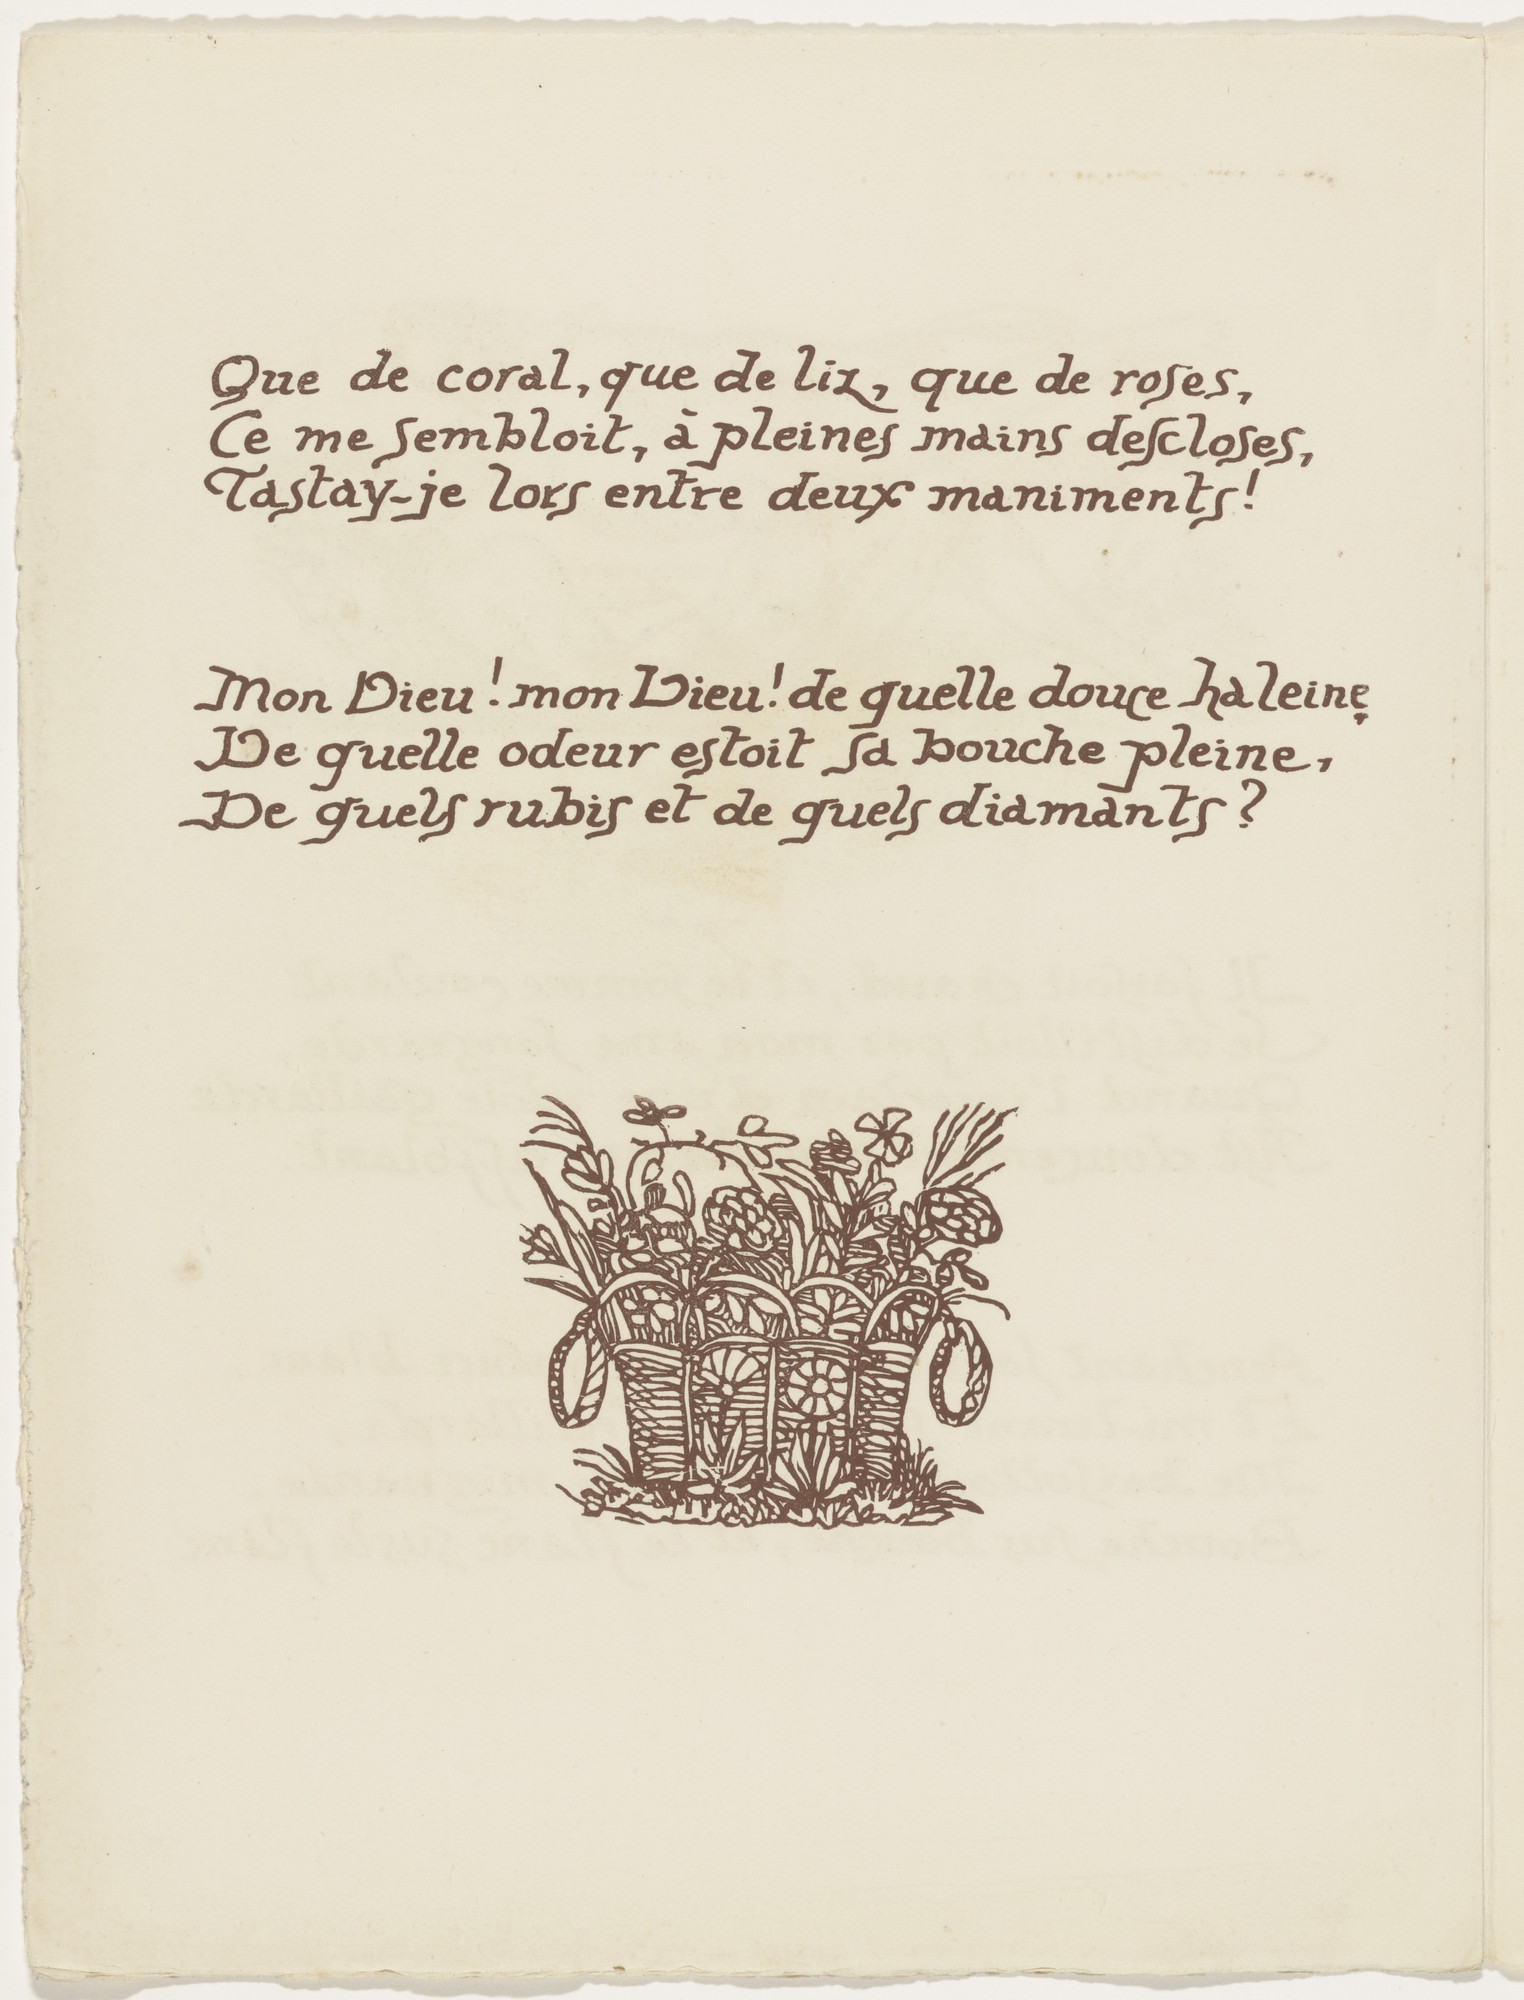 Que de coral, que de liz, que de roses,
Ce me sembloit, à pleines mains descloses,
Tastay-je lors entre deux maniments!
Mon Dieu! mon Dieu! de quelle douce haleine,
De quelle odeur estoit sa bouche pleine,
De quels rubis et de quels diamants?